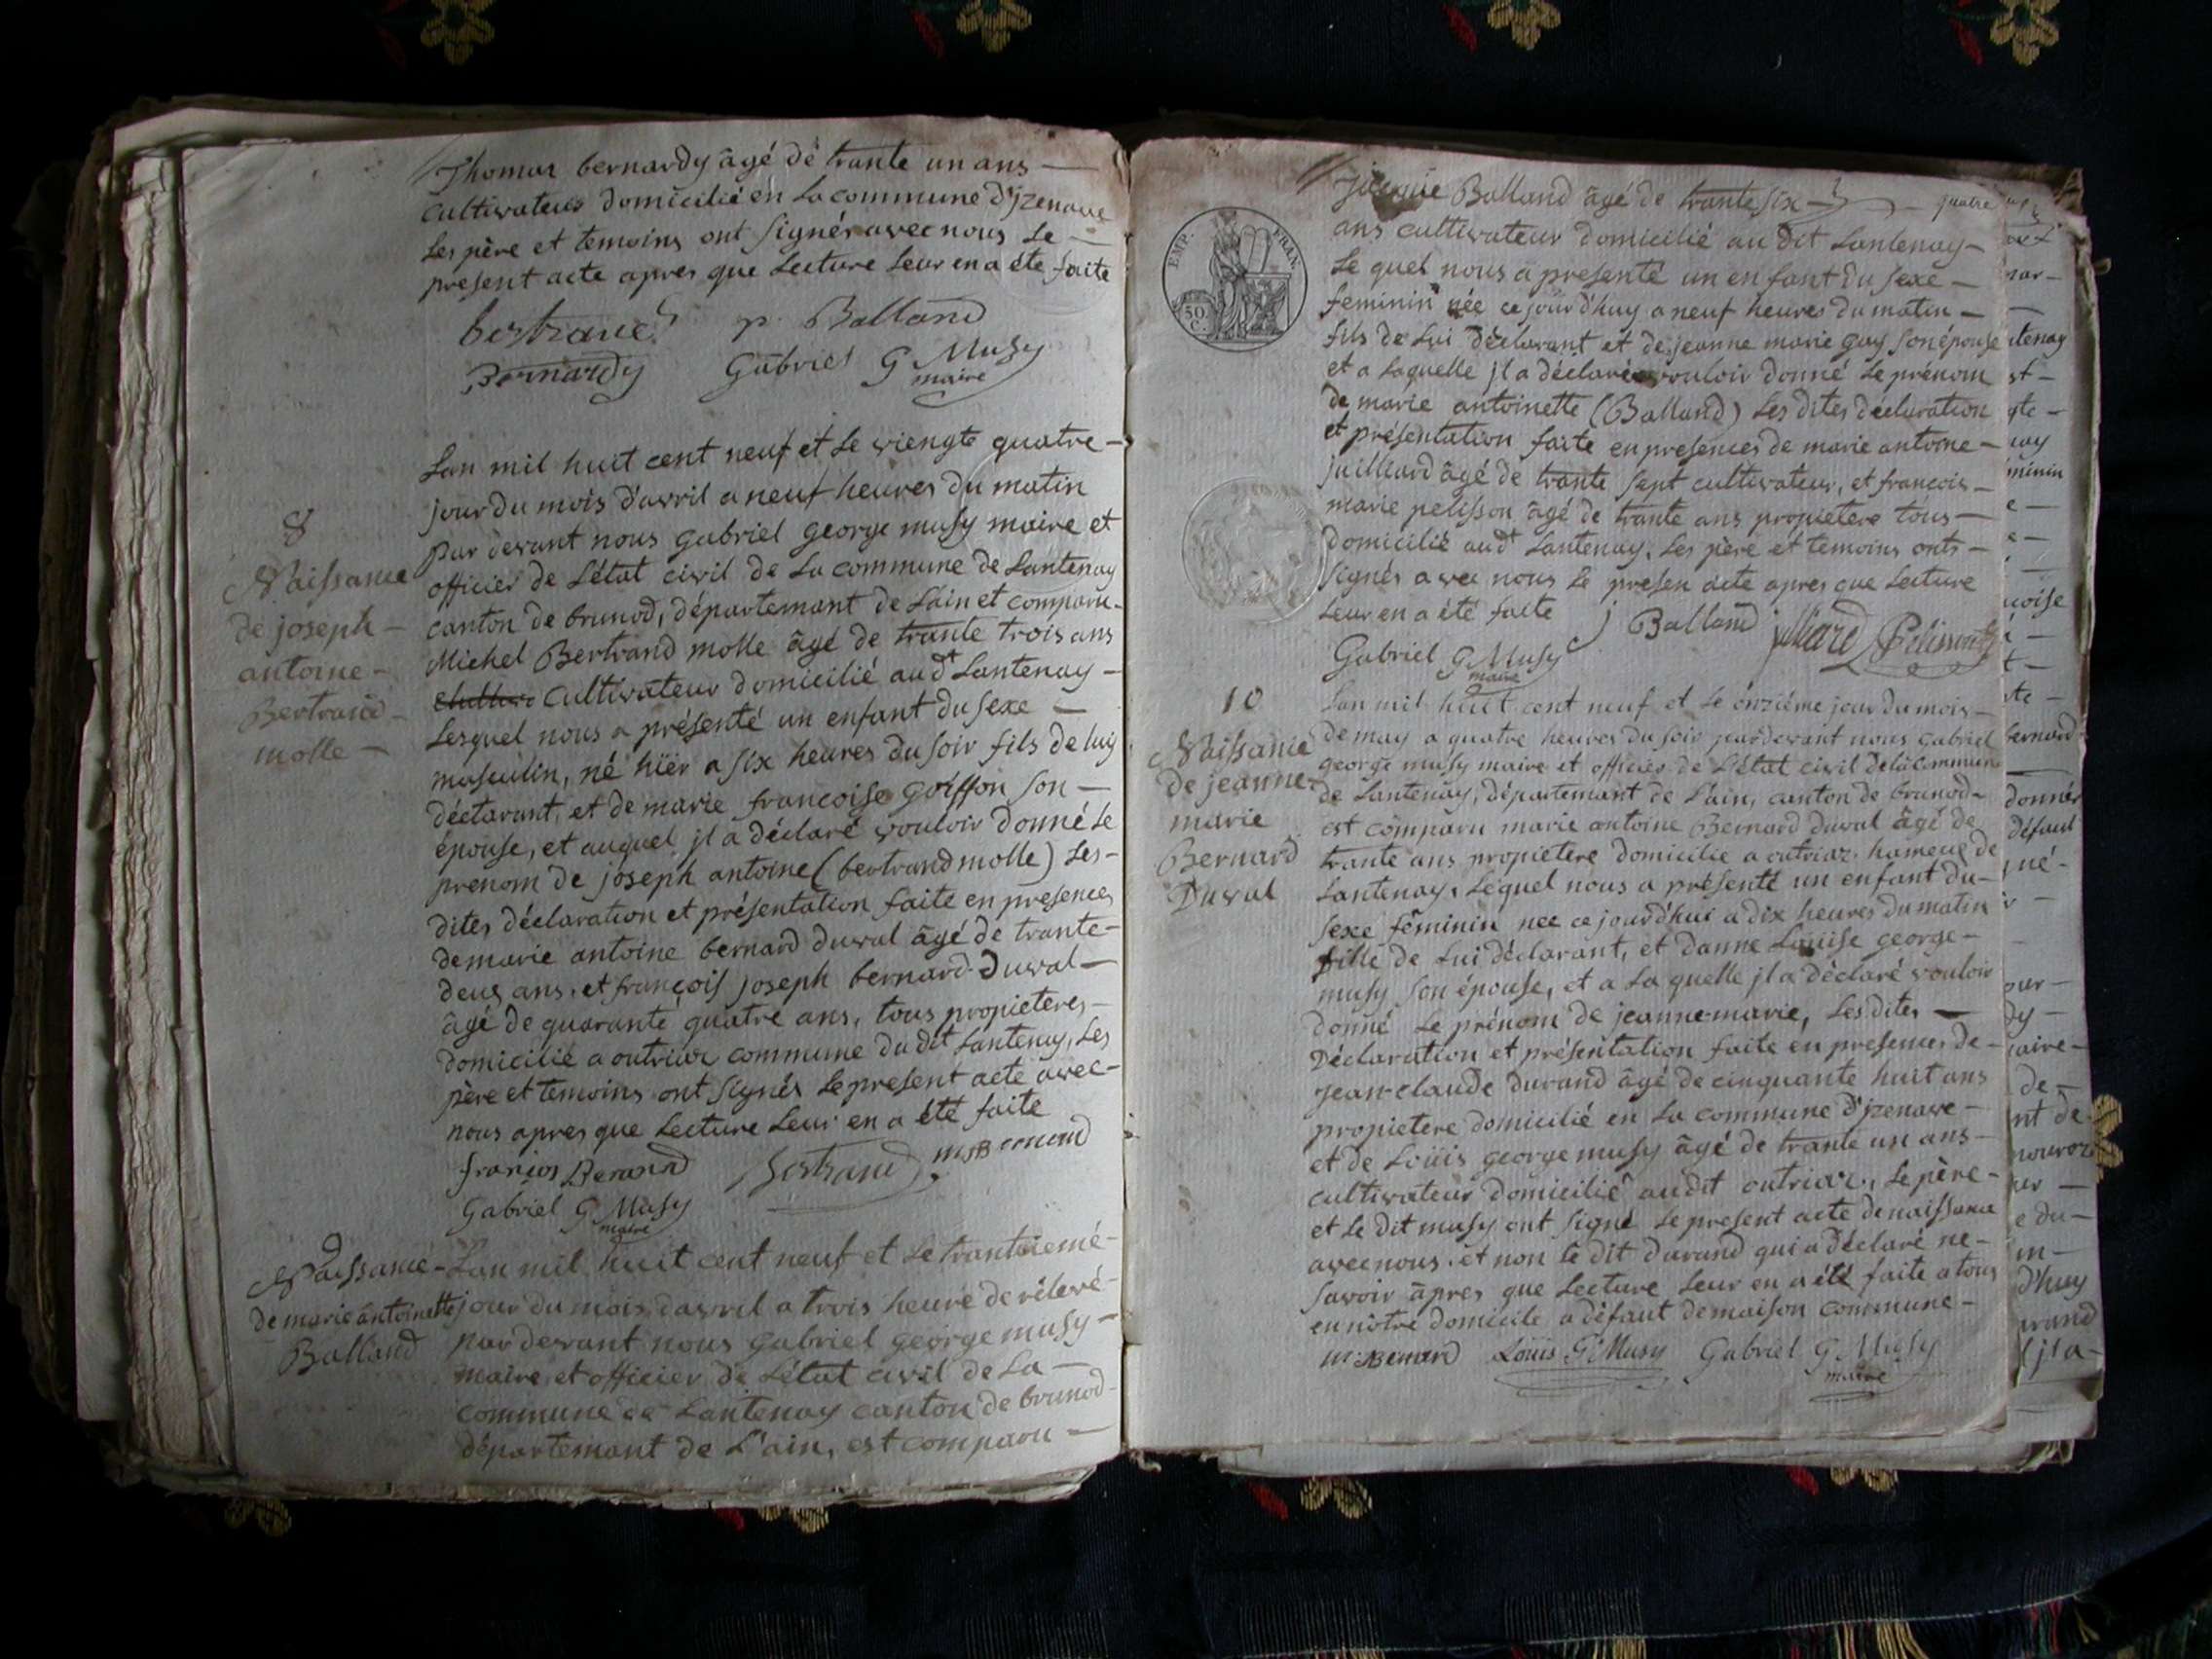 Thomas bernardy âgé de trante un ans —
cultivateur domicilié en la commune d'jzenave
Les père et temoins ont signés avec nous Le —
present acte apres que Lecture Leur en a été faite
bertrand p. Balland
Bernardy Gabriel G Musy
maire
8
Naissance
de joseph —
antoine —
Bertrand —
molle —
Lan mil huit cent neuf et Le viengte quatre —
jour du mois d'avril a neuf heures du matin
par devant nous gabriel george musy maire et
officier de L'état civil de La commune de Lantenay
canton de brunod, départemant de L'ain et comparu —
Michel Bertrand molle âgé de trante trois ans
cultivateur domicilié aud.t Lantenay —
Lesquel nous a présenté un enfant du sexe —
masculin, né hïer a six heures du soir fils de luy
déclarant, et de marie francoise goiffon son —
épouse, et auquel jl a déclaré vouloir donné Le
prenom de joseph antoine (bertrand molle) Les —
dites déclaration et présentation faite en presences
de marie antoine bernard duval âgé de trante —
deux ans, et françois joseph bernard Duval —
âgé de quarante quatre ans, tous propieteres —
domicilié a outriaz commune du dit Lantenay, Les
père et temoins ont signés Le present acte avec —
nous apres que Lecture Leur en a été faite
françois Benard Bertrand m.a Bernard
Gabriel G Musy
maire
9
Naissance —
de marie antoinette
Balland
Lan mil huit cent neuf et Le trantiemé —
jour du mois davril a trois heure de rélevé —
par devant nous gabriel george musy —
maire et officier de L'état civil de La —
commune de Lantenay canton de brunod —
départemant de L'ain, est comparu —
EMP. FRAN.
50
C.
Balland âgé de trante six — quatre
ans cultivateur domicilié au dit Lantenay —
Le quel nous a presenté un enfant du sexe —
feminin née ce jour d'huy a neuf heures du matin —
fils de Lui déclarant et de jeanne marie guy son épouse
et a Laquelle jl a déclaré vouloir donné Le prénom
de marie antoinette (Balland) Les dites déclaration
et présentation faite en presences de marie antoine —
juilliard âgé de trante sept cultivateur, et françois —
marie pelisson âgé de trante ans propietere tous —
domicilié aud.t Lantenay. Les père et temoins onts —
signés avec nous Le presen acte apres que Lecture
Leur en a été faite j Balland
Gabriel G Musy
maire
10
Naissance
de jeanne —
marie
Bernard
Duval
Lan mil huit cent neuf et Le onziéme jour du mois —
de may a quatre heures du soir pardevant nous gabriel
george musy maire et officier de L'état civil de la commune
de Lantenay, départemant de L'ain, canton de brunod —
est comparu marie antoine Bernard duval âgé de
trante ans propietere domicilié a outriaz hameux de
Lantenay, Lequel nous a présenté un enfant du —
sexe féminin née ce jourd'hui a dix heures du matin
fille de Lui déclarant, et danne Louise george —
musy son épouse, et a La quelle jl a déclaré vouloir
donné Le prénom de jeanne marie, Les dites —
Déclaration et présentation faite en presences de —
jean-claude durand âgé de cinquante huit ans
propietere domicilié en La commune d'jzenave —
et de Loüis george musy âgé de trante un ans —
cultivateur domicilié au dit outriaz., Le père —
et Le dit musy ont signé Le present acte de naissance
avec nous. et non le dit durand qui a déclaré ne —
savoir âpres que Lecture Leur en a été faite a tous
en nôtre domicile a défaut de maison commune —
m. a Bernard Loüis G Musy Gabriel G Musy
maire